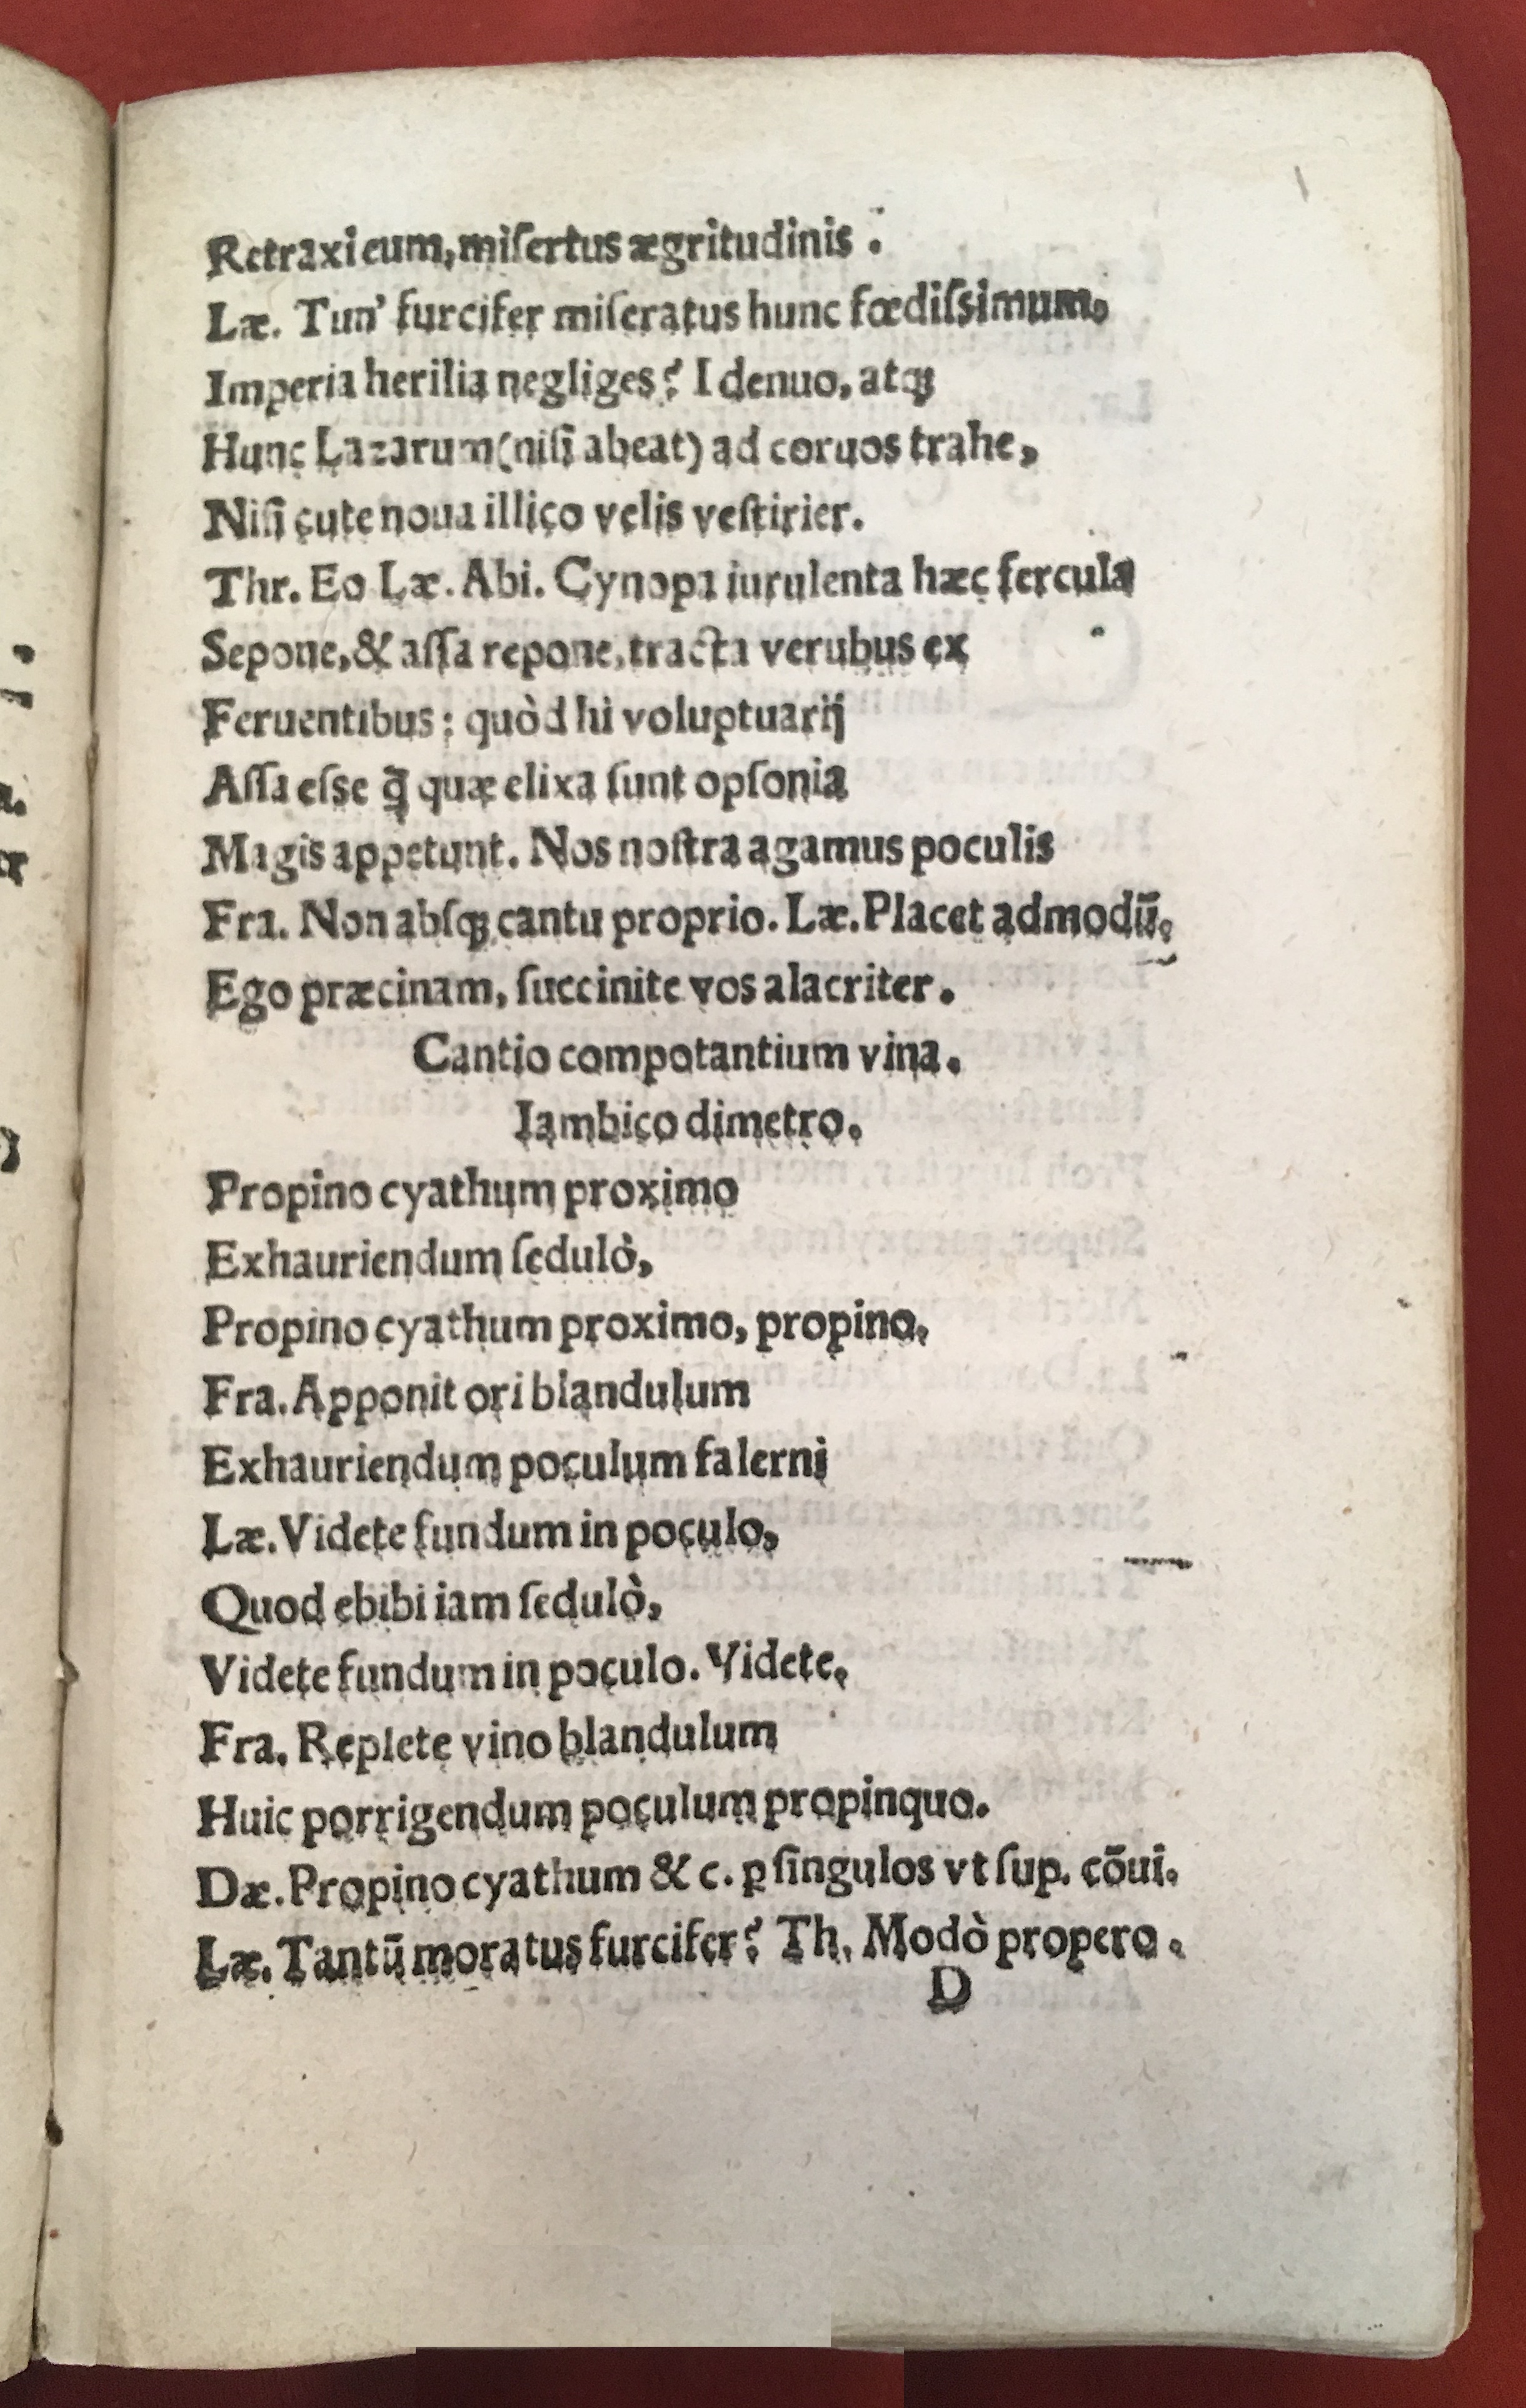 Retraxi eum, miſertus ægritudinis.
Læ. Tun' furcifer miſeratus hunc fœdiſsimum,
Imperia herilia negliges? I denuo, atqꝫ
Hunc Lazarum (niſi abeat) ad coruos trahe,
Niſi cute noua illico velis veſtirier.
Thr. Eo Læ. Abi. Cynopa iurulenta hæc fercula
Sepone, & aſſa repone, tracta verubus ex
Feruentibus: quòd hi voluptuarij
Aſſa eſse q̃ quæ elixa ſunt opſonia
Magis appetunt. Nos noſtra agamus poculis
Fra. Non abſqꝫ cantu proprio. Læ. Placet admodū.
Ego præcinam, ſuccinite vos alacriter.
Cantio compotantium vina.
Iambico dimetro.
Propino cyathum proximo
Exhauriendum ſedulò,
Propino cyathum proximo, propino.
Fra. Apponit ori blandulum
Exhauriendum poculum falerni
Læ. Videte fundum in poculo,
Quod ebibi iam ſedulò,
Videte fundum in poculo. Videte.
Fra. Replete vino blandulum
Huic porrigendum poculum propinquo.
Dæ. Propino cyathum & c. ꝑ ſingulos vt ſup. cōui.
Læ. Tantū moratus furcifer? Th. Modò propero.
D